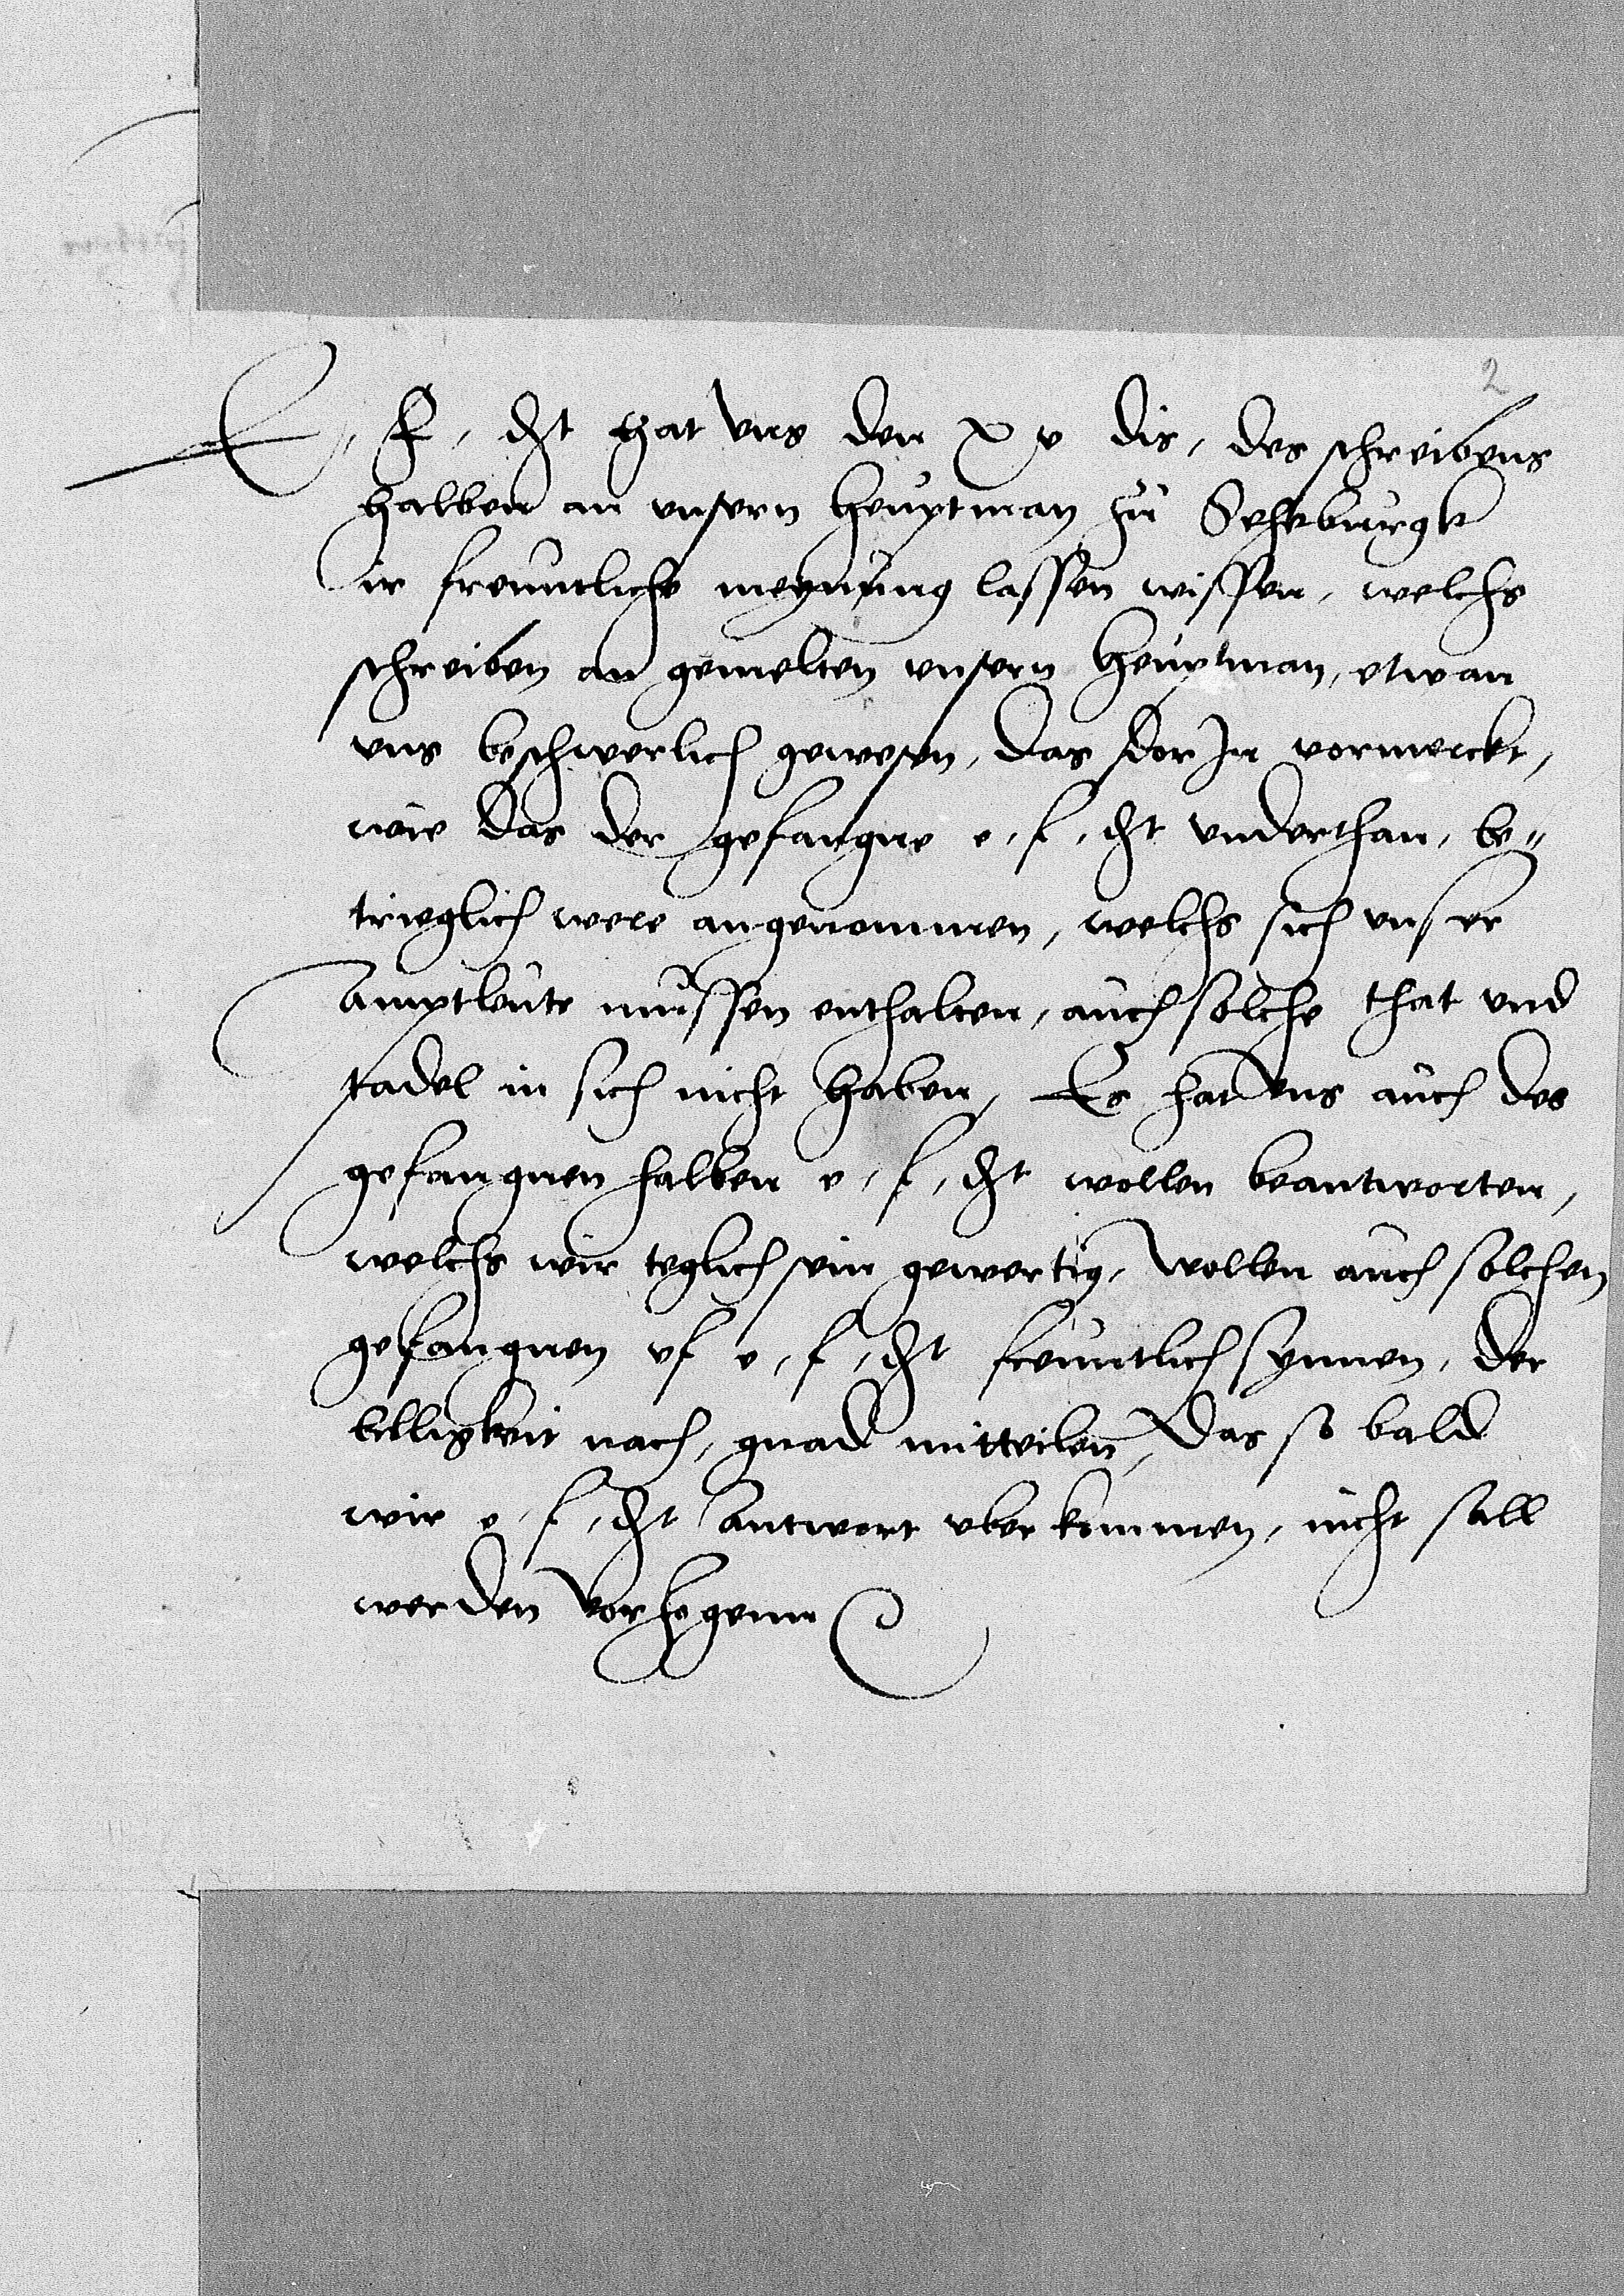 2
E, F, dht hat vns den xv dis, des schreibens
halben an vnsern heuptman zu Seheburgk
ir freuntliche meynung lassen wissen, welchs
schreiben an gemelten vnsern heuptman, etwan
vns beschwerlich gewesen, das dorJn vormerckt,
wie das der gefangne e, f, dht vnderthan, be„
trieglich were angenommen, welchs sich vnser
amptleute mussen enthalten, auch solche that vnd
tadel in sich nicht haben, Es hat vns auch des
gefangnen halben e, f, dht wollen beantworten,
welchs wir teglich sein gewertig, wollen auch solchen
gefangnen vf e, f, dht freuntlich synnen, der
billigkeit nach, gnad mitteilen, das so bald
wir e, f, dht antwort vberkommen, nicht sall
werden vorhegenn